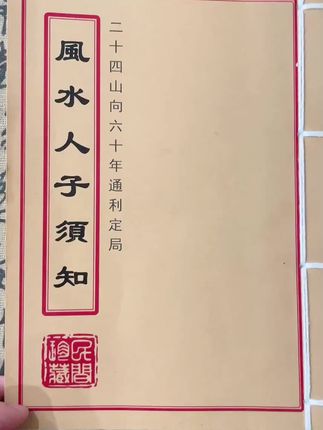 二十四山向六十年通利定局
風水人子須知
民間珍藏